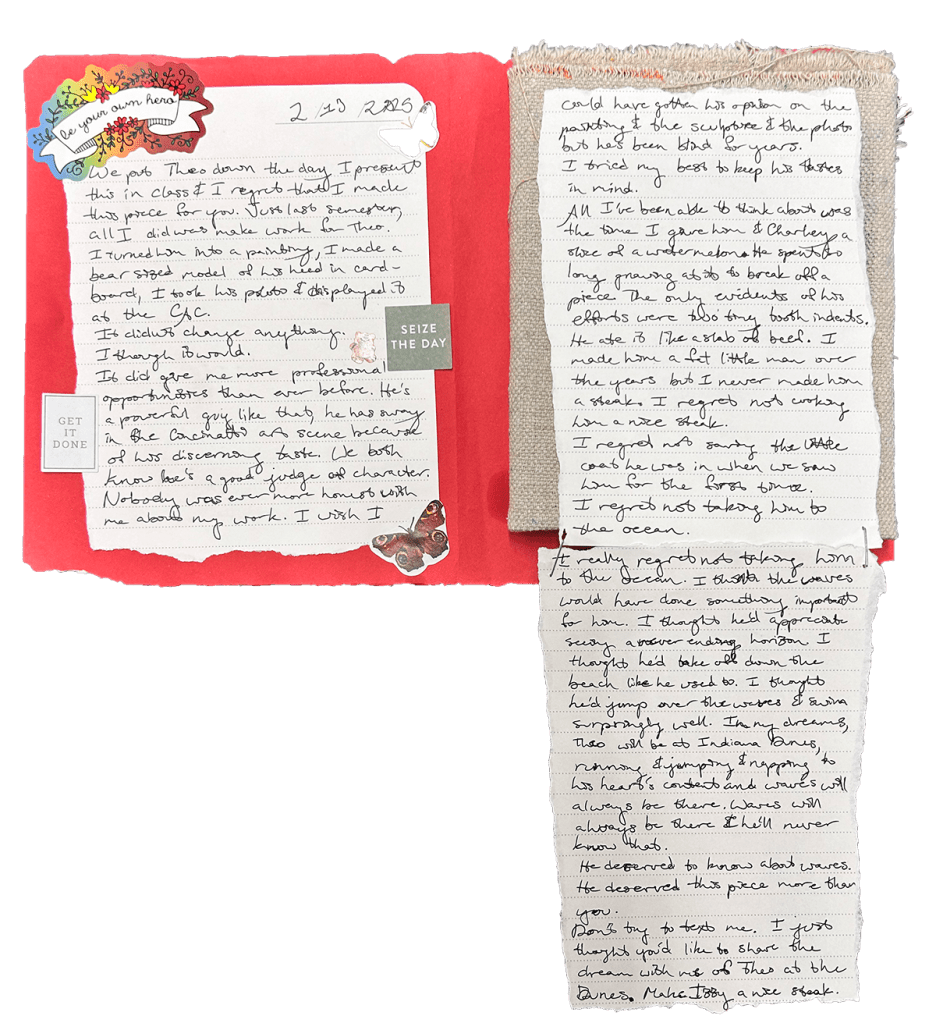 be your own hero
2/10/2025
We put Theo down the day I present
this in class & I regret that I made
this piece for you. Just last semester,
all I did was make work for Theo.
I turned him into a painting, I made a
bear sized model of his head in card-
board, I took his photo & displayed it
at the CAC.
It didn't change anything.
I though it would.
It did give me more professional
opportunities than ever before. He's
a powerful guy like that, he has sway
in the Cincinatti art scene because
of his discerning taste. We both
know he's a good judge of character.
Nobody was ever more honest with
me about my work. I wish I
SEIZE
THE DAY
GET
IT
DONE
could have gotten his opinion on the
painting & the sculpture & the photo
but he's been blind for years.
I tried my best to keep his tastes
in mind.
All I've been able to think about was
the time I gave him & Charley a
slice of a watermelon. He spent so
long gnawing at it to break off a
piece. The only evidents of his
efforts were two tiny tooth indents.
He ate it like a slab of beef. I
made him a fat little man over
the years but I never made him
a steak. I regret not cooking
him a nice steak.
I regret not saving the little
coat he was in when we saw
him for the first time.
I regret not taking him to
the ocean.
I really regret not taking him
to the ocean. I think the waves
would have done something important
for him. I thought he'd appreciate
seeing a never ending horizon I
thought he'd take off down the
beach like he used to. I thought
he'd jump over the waves & swim
surprisingly well. In my dreams,
Theo will be at Indiana Dunes,
running & jumping & napping to
his heart's content and waves will
always be there. Waves will
always be there & he'll never
know that.
He deserved to know about waves.
He deserved this piece more than
you.
Don't try to text me. I just
thought you'd like to share the
dream with me of Theo at the
Dunes. Make Izzy a nice steak.